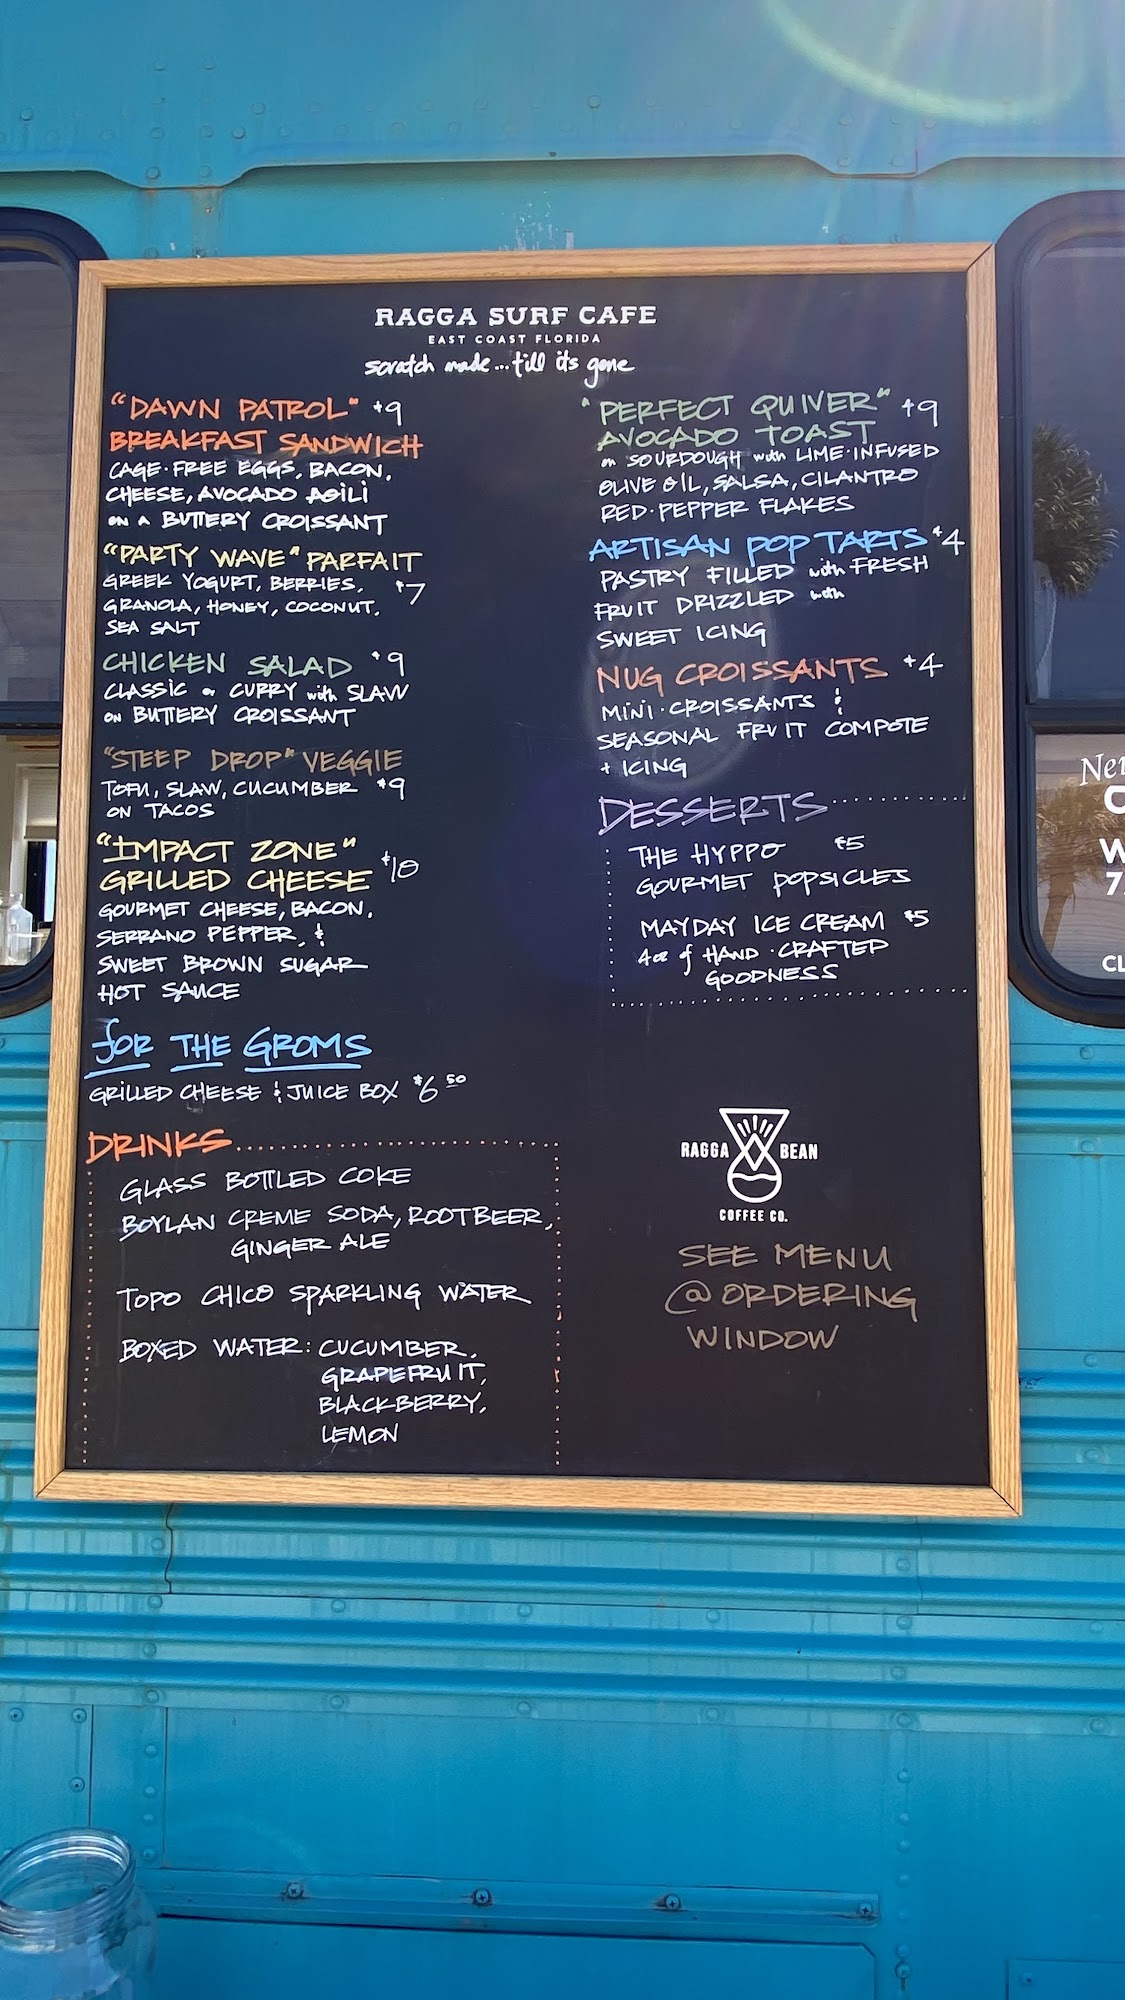 RAGGA SURF CAFE
EAST COAST FLORIDA
scratch made...till its gone
"DAWN PATROL" $9
BREAKFAST SANDWICH
CAGE-FREE EGGS, BACON,
CHEESE, AVOCADO AGILI
on a BUTTERY CROISSANT
"PARTY WAVE" PARFAIT
GREEK YOGURT, BERRIES, $7
GRANOLA, HONEY, COCONUT,
SEA SALT
CHICKEN SALAD $9
CLASSIC or CURRY with SLAW
on BUTTERY CROISSANT
"STEEP DROP" VEGGIE
TOFU, SLAW, CUCUMBER $9
ON TACOS
"IMPACT ZONE"
GRILLED CHEESE $10
GOURMET CHEESE, BACON,
SERRANO PEPPER, &
SWEET BROWN SUGAR
HOT SAUCE
for THE GROMS
GRILLED CHEESE & JUICE BOX $6 50
DRINKS
GLASS BOTTLED COKE
BOYLAN CREME SODA, ROOTBEER,
GINGER ALE
TOPO CHICO SPARKLING WATER
BOXED WATER: CUCUMBER,
GRAPEFRUIT,
BLACKBERRY,
LEMON
"PERFECT QUIVER" $9
AVOCADO TOAST
on SOURDOUGH with LIME-INFUSED
OLIVE OIL, SALSA, CILANTRO
RED-PEPPER FLAKES
ARTISAN POP TARTS $4
PASTRY FILLED with FRESH
FRUIT DRIZZLED with
SWEET ICING
NUG CROISSANTS $4
MINI-CROISSANTS &
SEASONAL FRUIT COMPOTE
+ ICING
DESSERTS
THE HYPPO $5
GOURMET POPSICLES
MAYDAY ICE CREAM $5
4oz of HAND-CRAFTED
GOODNESS
RAGGA BEAN
COFFEE CO.
SEE MENU
@ ORDERING
WINDOW